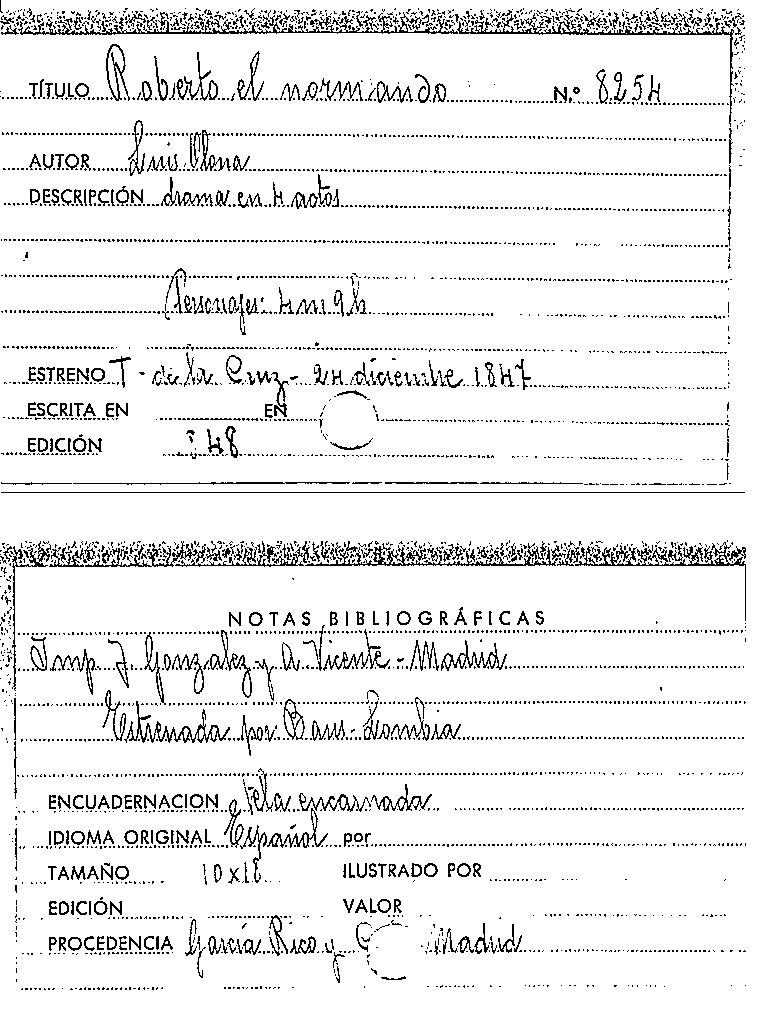 TÍTULO Roberto el normando N.º 8254
AUTOR Luis Olona
DESCRIPCIÓN drama en 4 actos
Personajes: 4 m 9 h
ESTRENO T- de la Cruz- 24 diciembre 1847
ESCRITA EN EN
EDICIÓN 48
NOTAS BIBLIOGRÁFICAS
Imp J. Gonzalez y A. Vicente - Madrid
Estrenada por Baus- Lombia
ENCUADERNACION tela encarnada
IDIOMA ORIGINAL Español por
TAMAÑO 10x18 ILUSTRADO POR
EDICIÓN VALOR
PROCEDENCIA García Rico y Madrid